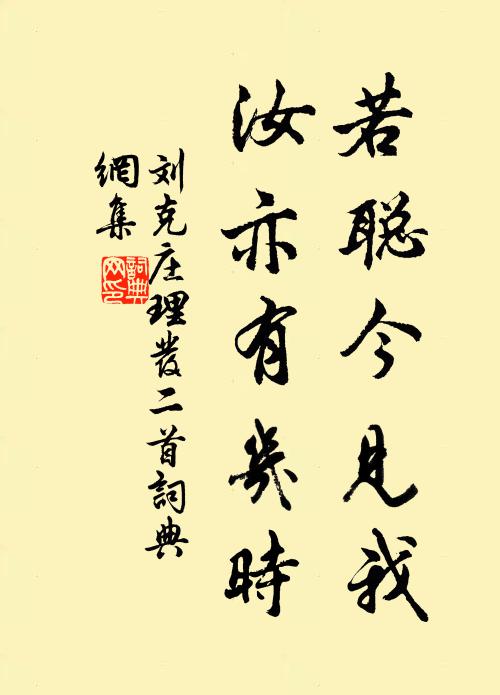 若聪今见我
汝亦有幾時
刘克庄理发二首詞典
網集
詞典
网印